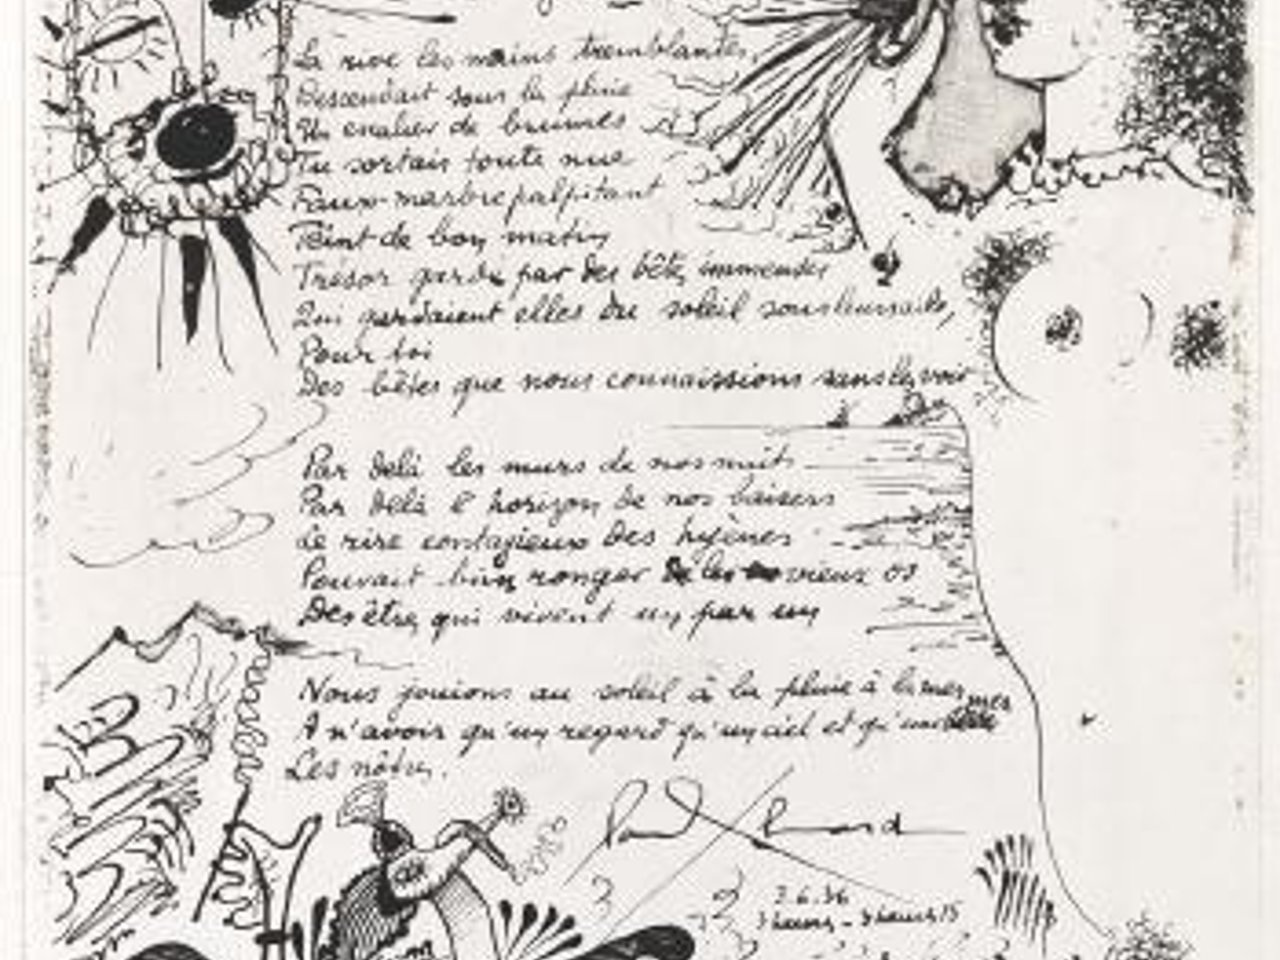 La rive les mains tremblantes,
Descendait sous la pluie
Un escalier de brumes
Tu sortais toute nue
Faux marbre palpitant
Teint de bon matin
Trésor gardé par des bêtes immenses
Qui gardaient elles du soleil sous leurs ailes,
Pour toi
Des bêtes que nous connaissions sans les voir
Par delà les murs de nos nuits
Par delà l'horizon de nos baisers
Le rire contagieux des hyènes
Pouvait bien ronger les vieux os
Des êtres qui vivent un par un
Nous jouions au soleil à la pluie à la mer
A n'avoir qu'un regard qu'un ciel et qu'une mer
Les nôtres.
Paul Eluard
3.6.36
3 heures - 3 heures 15